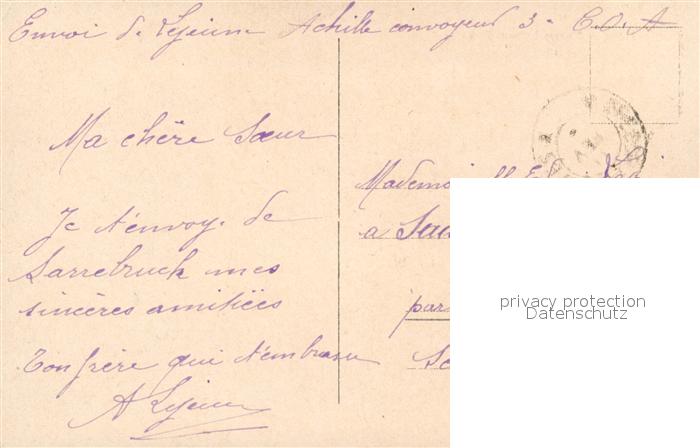 Envoi de Lejeune Achille convoyeur 3e C.O.A
Ma chère Sœur
Je t'envoy. de
Sarrebruck mes
sincères amitiées
Ton frère qui t'embrasse
A Lejeune
Mademoiselle
a
par
privacy protection
Datenschutz